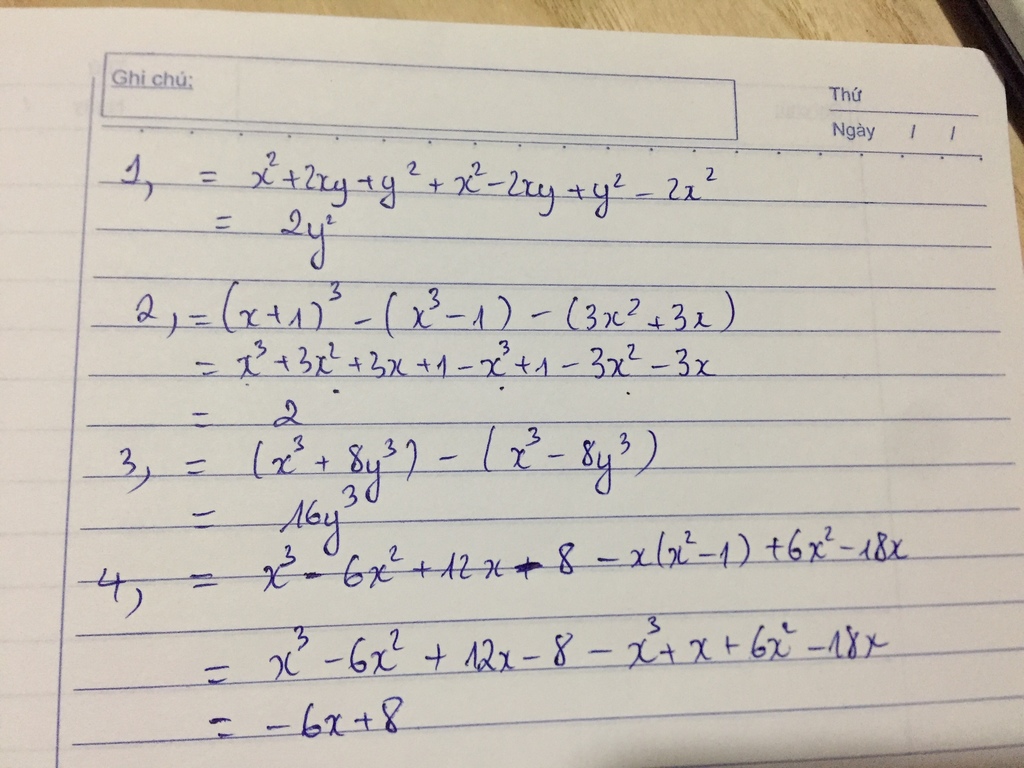 Ghi chú:
Thứ
Ngày / /
1, = x² + 2xy + y² + x² - 2xy + y² - 2x²
= 2y²
2, = (x+1)³ - (x³ - 1) - (3x² + 3x)
= x³ + 3x² + 3x + 1 - x³ + 1 - 3x² - 3x
= 2
3, = (x³ + 8y³) - (x³ - 8y³)
= 16y³
4, = x³ - 6x² + 12x - 8 - x(x² - 1) + 6x² - 18x
= x³ - 6x² + 12x - 8 - x³ + x + 6x² - 18x
= - 6x + 8